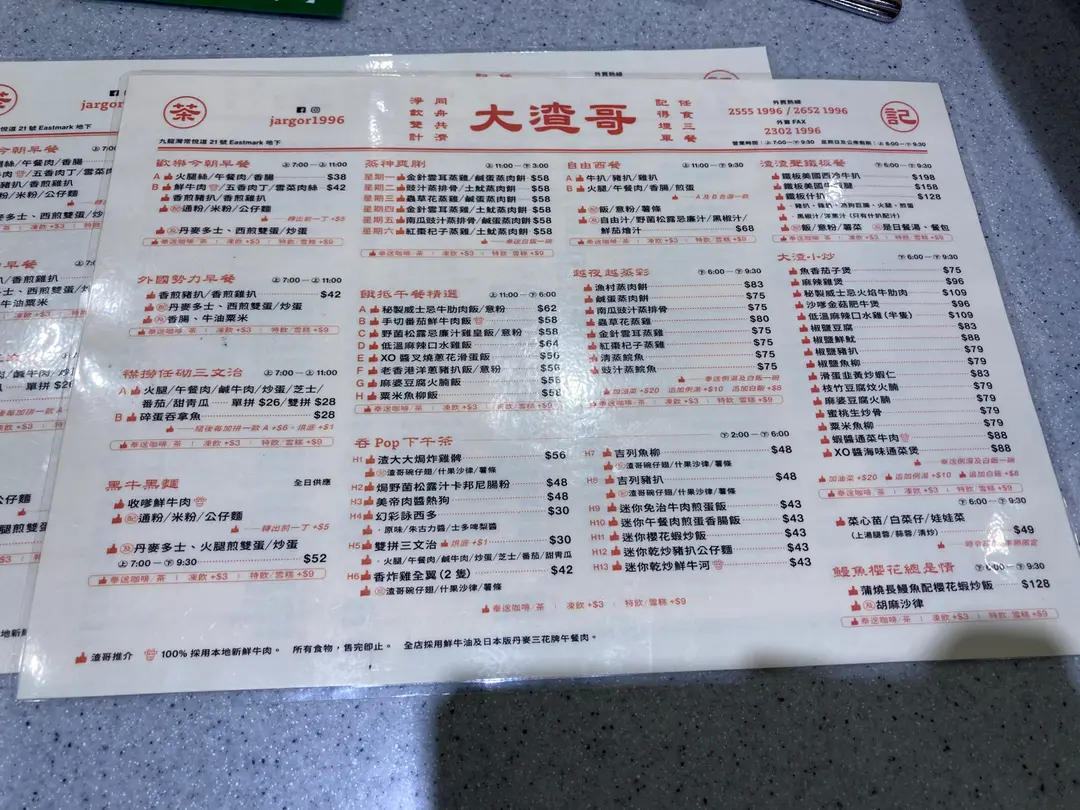 茶
jargor1996
九龍灣常悅道 21 號 Eastmark 地下
淨飲雙計
同舟共濟
大渣哥
記得埋單
任食三餐
外賣熱線
2555 1996 / 2652 1996
外賣 FAX
2302 1996
記
歡樂今朝早餐 上 7:00 — 上 11:00
A 火腿絲/午餐肉/香腸 $38
B 鮮牛肉/五香肉丁/雪菜肉絲 $42
香煎豬扒/香煎雞扒
通粉/米粉/公仔麵
轉出前一丁 +$5
丹麥多士、西煎雙蛋/炒蛋
奉送咖啡/茶 | 凍飲+$3 | 特飲/雪糕+$9
外國勢力早餐 上 7:00 — 上 11:00
香煎豬扒/香煎雞扒 $42
及 丹麥多士、西煎雙蛋/炒蛋
及 香腸、牛油粟米
奉送咖啡/茶 | 凍飲+$3 | 特飲/雪糕+$9
襟撈任砌三文治 上 7:00 — 上 11:00
A 火腿/午餐肉/鹹牛肉/炒蛋/芝士/
番茄/甜青瓜 單拼 $26/雙拼 $28
B 碎蛋吞拿魚 $28
隨後每加拼一款 A +$6、烘底 +$1
奉送咖啡/茶 | 凍飲+$3 | 特飲/雪糕+$9
黑牛黑麵 全日供應
收嗲鮮牛肉
通粉/米粉/公仔麵
轉出前一丁 +$5
及 丹麥多士、火腿煎雙蛋/炒蛋
上 7:00 — 下 9:30 $52
奉送咖啡/茶 | 凍飲+$3 | 特飲/雪糕+$9
蒸神爽脷 上 11:00 — 下 3:00
星期一 金針雲耳蒸雞/鹹蛋蒸肉餅 $58
星期二 豉汁蒸排骨/土魷蒸肉餅 $58
星期三 蟲草花蒸雞/鹹蛋蒸肉餅 $58
星期四 金針雲耳蒸雞/土魷蒸肉餅 $58
星期五 南瓜豉汁蒸排骨/鹹蛋蒸肉餅 $58
星期六 紅棗杞子蒸雞/土魷蒸肉餅 $58
奉送白飯一碗
奉送咖啡/茶 | 凍飲+$3 | 特飲/雪糕+$9
餓抵午餐精選 上 11:00 — 下 6:00
A 秘製威士忌牛肋肉飯/意粉 $62
B 手切番茄鮮牛肉飯 $58
C 野菌松露忌廉汁雞皇飯/意粉 $58
D 低溫麻辣口水雞飯 $64
E XO 醬叉燒蔥花滑蛋飯 $56
F 老香港洋蔥豬扒飯/意粉 $56
G 麻婆豆腐火腩飯 $58
H 粟米魚柳飯 $58
奉送咖啡/茶 | 凍飲+$3 | 特飲/雪糕+$9
吞 Pop 下午茶 下 2:00 — 下 6:00
H1 渣大大焗炸雞髀 $56
渣哥碗仔翅/什果沙律/薯條
H2 焗野菌松露汁卡邦尼腸粉 $48
H3 美帝肉醬熱狗 $48
H4 幻彩詠西多 $30
· 原味/朱古力醬/士多啤梨醬
H5 雙拼三文治 烘底 +$1 $30
· 火腿/午餐肉/鹹牛肉/炒蛋/芝士/番茄/甜青瓜
H6 香炸雞全翼 (2 隻) $42
渣哥碗仔翅/什果沙律/薯條
H7 吉列魚柳 $48
渣哥碗仔翅/什果沙律/薯條
H8 吉列豬扒 $48
渣哥碗仔翅/什果沙律/薯條
H9 迷你免治牛肉煎蛋飯 $43
H10 迷你午餐肉煎蛋香腸飯 $43
H11 迷你櫻花蝦炒飯 $43
H12 迷你乾炒豬扒公仔麵 $43
H13 迷你乾炒鮮牛河 $43
奉送咖啡/茶 | 凍飲+$3 | 特飲/雪糕+$9
自由西餐 上 11:00 — 下 9:30
A 牛扒/豬扒/雞扒
B 火腿/午餐肉/香腸/煎蛋
飯/意粉/薯條
自由汁/野菌松露忌廉汁/黑椒汁/
鮮茄燴汁 $68
奉送咖啡/茶 | 凍飲+$3 | 特飲/雪糕+$9
越夜越蒸彩 下 6:00 — 下 9:30
漁村蒸肉餅 $83
鹹蛋蒸肉餅 $75
南瓜豉汁蒸排骨 $75
蟲草花蒸雞 $80
金針雲耳蒸雞 $75
紅棗杞子蒸雞 $75
清蒸鯇魚 $75
豉汁蒸鯇魚 $75
奉送例湯及白飯一碗
加油菜 +$20 追加例湯 +$10 追加白飯 +$8
奉送咖啡/茶 | 凍飲+$3 | 特飲/雪糕+$9
渣渣聲鐵板餐 下 6:00 — 下 9:30
鐵板美國西冷牛扒 $198
$158
鐵板什扒 $128
· 黑椒汁/洋蔥汁 (只有什扒配汁)
飯/意粉/薯菜 及 是日餐湯、餐包
奉送咖啡/茶 | 凍飲+$3 | 特飲/雪糕+$9
大渣小炒 下 6:00 — 下 9:30
魚香茄子煲 $75
麻辣雞煲 $96
秘製威士忌火焰牛肋肉 $109
沙嗲金菇肥牛煲 $96
低溫麻辣口水雞 (半隻) $109
椒鹽豆腐 $83
椒鹽鮮魷 $88
椒鹽豬扒 $79
椒鹽魚柳 $79
滑蛋韭黃炒蝦仁 $83
枝竹豆腐炆火腩 $79
麻婆豆腐火腩 $79
蜜桃生炒骨 $79
粟米魚柳 $79
蝦醬通菜牛肉 $88
XO 醬海味通菜煲 $88
奉送例湯及白飯一碗
加油菜 +$20 追加例湯 +$10 追加白飯 +$8
奉送咖啡/茶 | 凍飲+$3 | 特飲/雪糕+$9
下 6:00 — 下 9:30
菜心苗/白菜仔/娃娃菜
(上湯腿蓉/蒜蓉/清炒) $49
鰻魚櫻花總是情 下 6:00 — 下 9:30
蒲燒長鰻魚配櫻花蝦炒飯 $128
及 胡麻沙律
奉送咖啡/茶 | 凍飲+$3 | 特飲/雪糕+$9
渣哥推介 100% 採用本地新鮮牛肉。 所有食物，售完即止。 全店採用鮮牛油及日本版丹麥三花牌午餐肉。